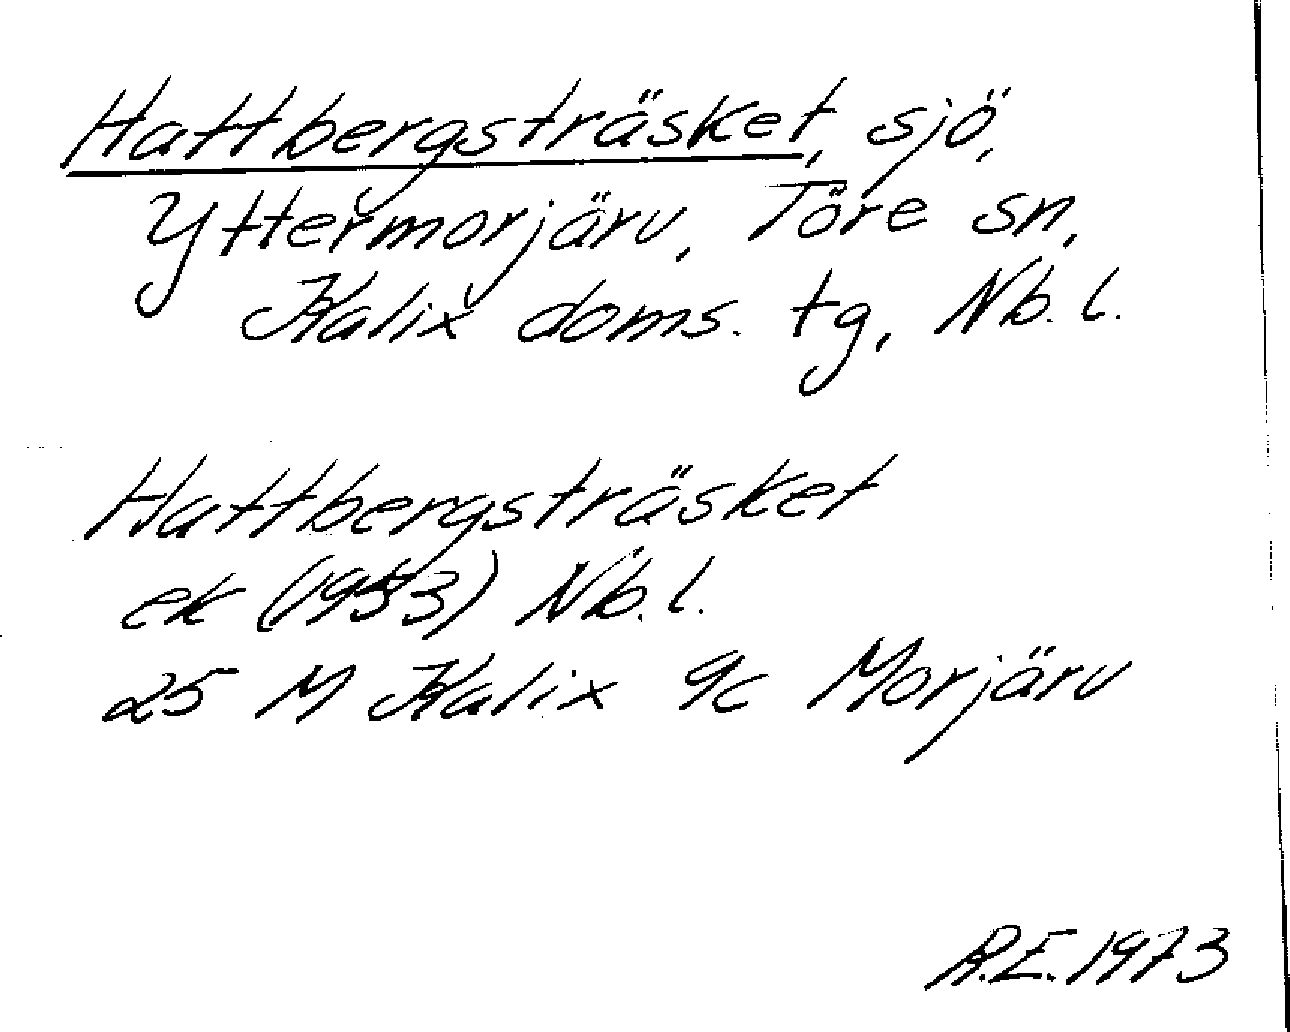 Hattbergsträsket, sjö,
Yttermorjärv, Töre sn,
Kalix doms. tg, Nb. l.
Hattbergsträsket
ek (1953) Nb. l.
25 M Kalix 9c Morjärv
R.E. 1973